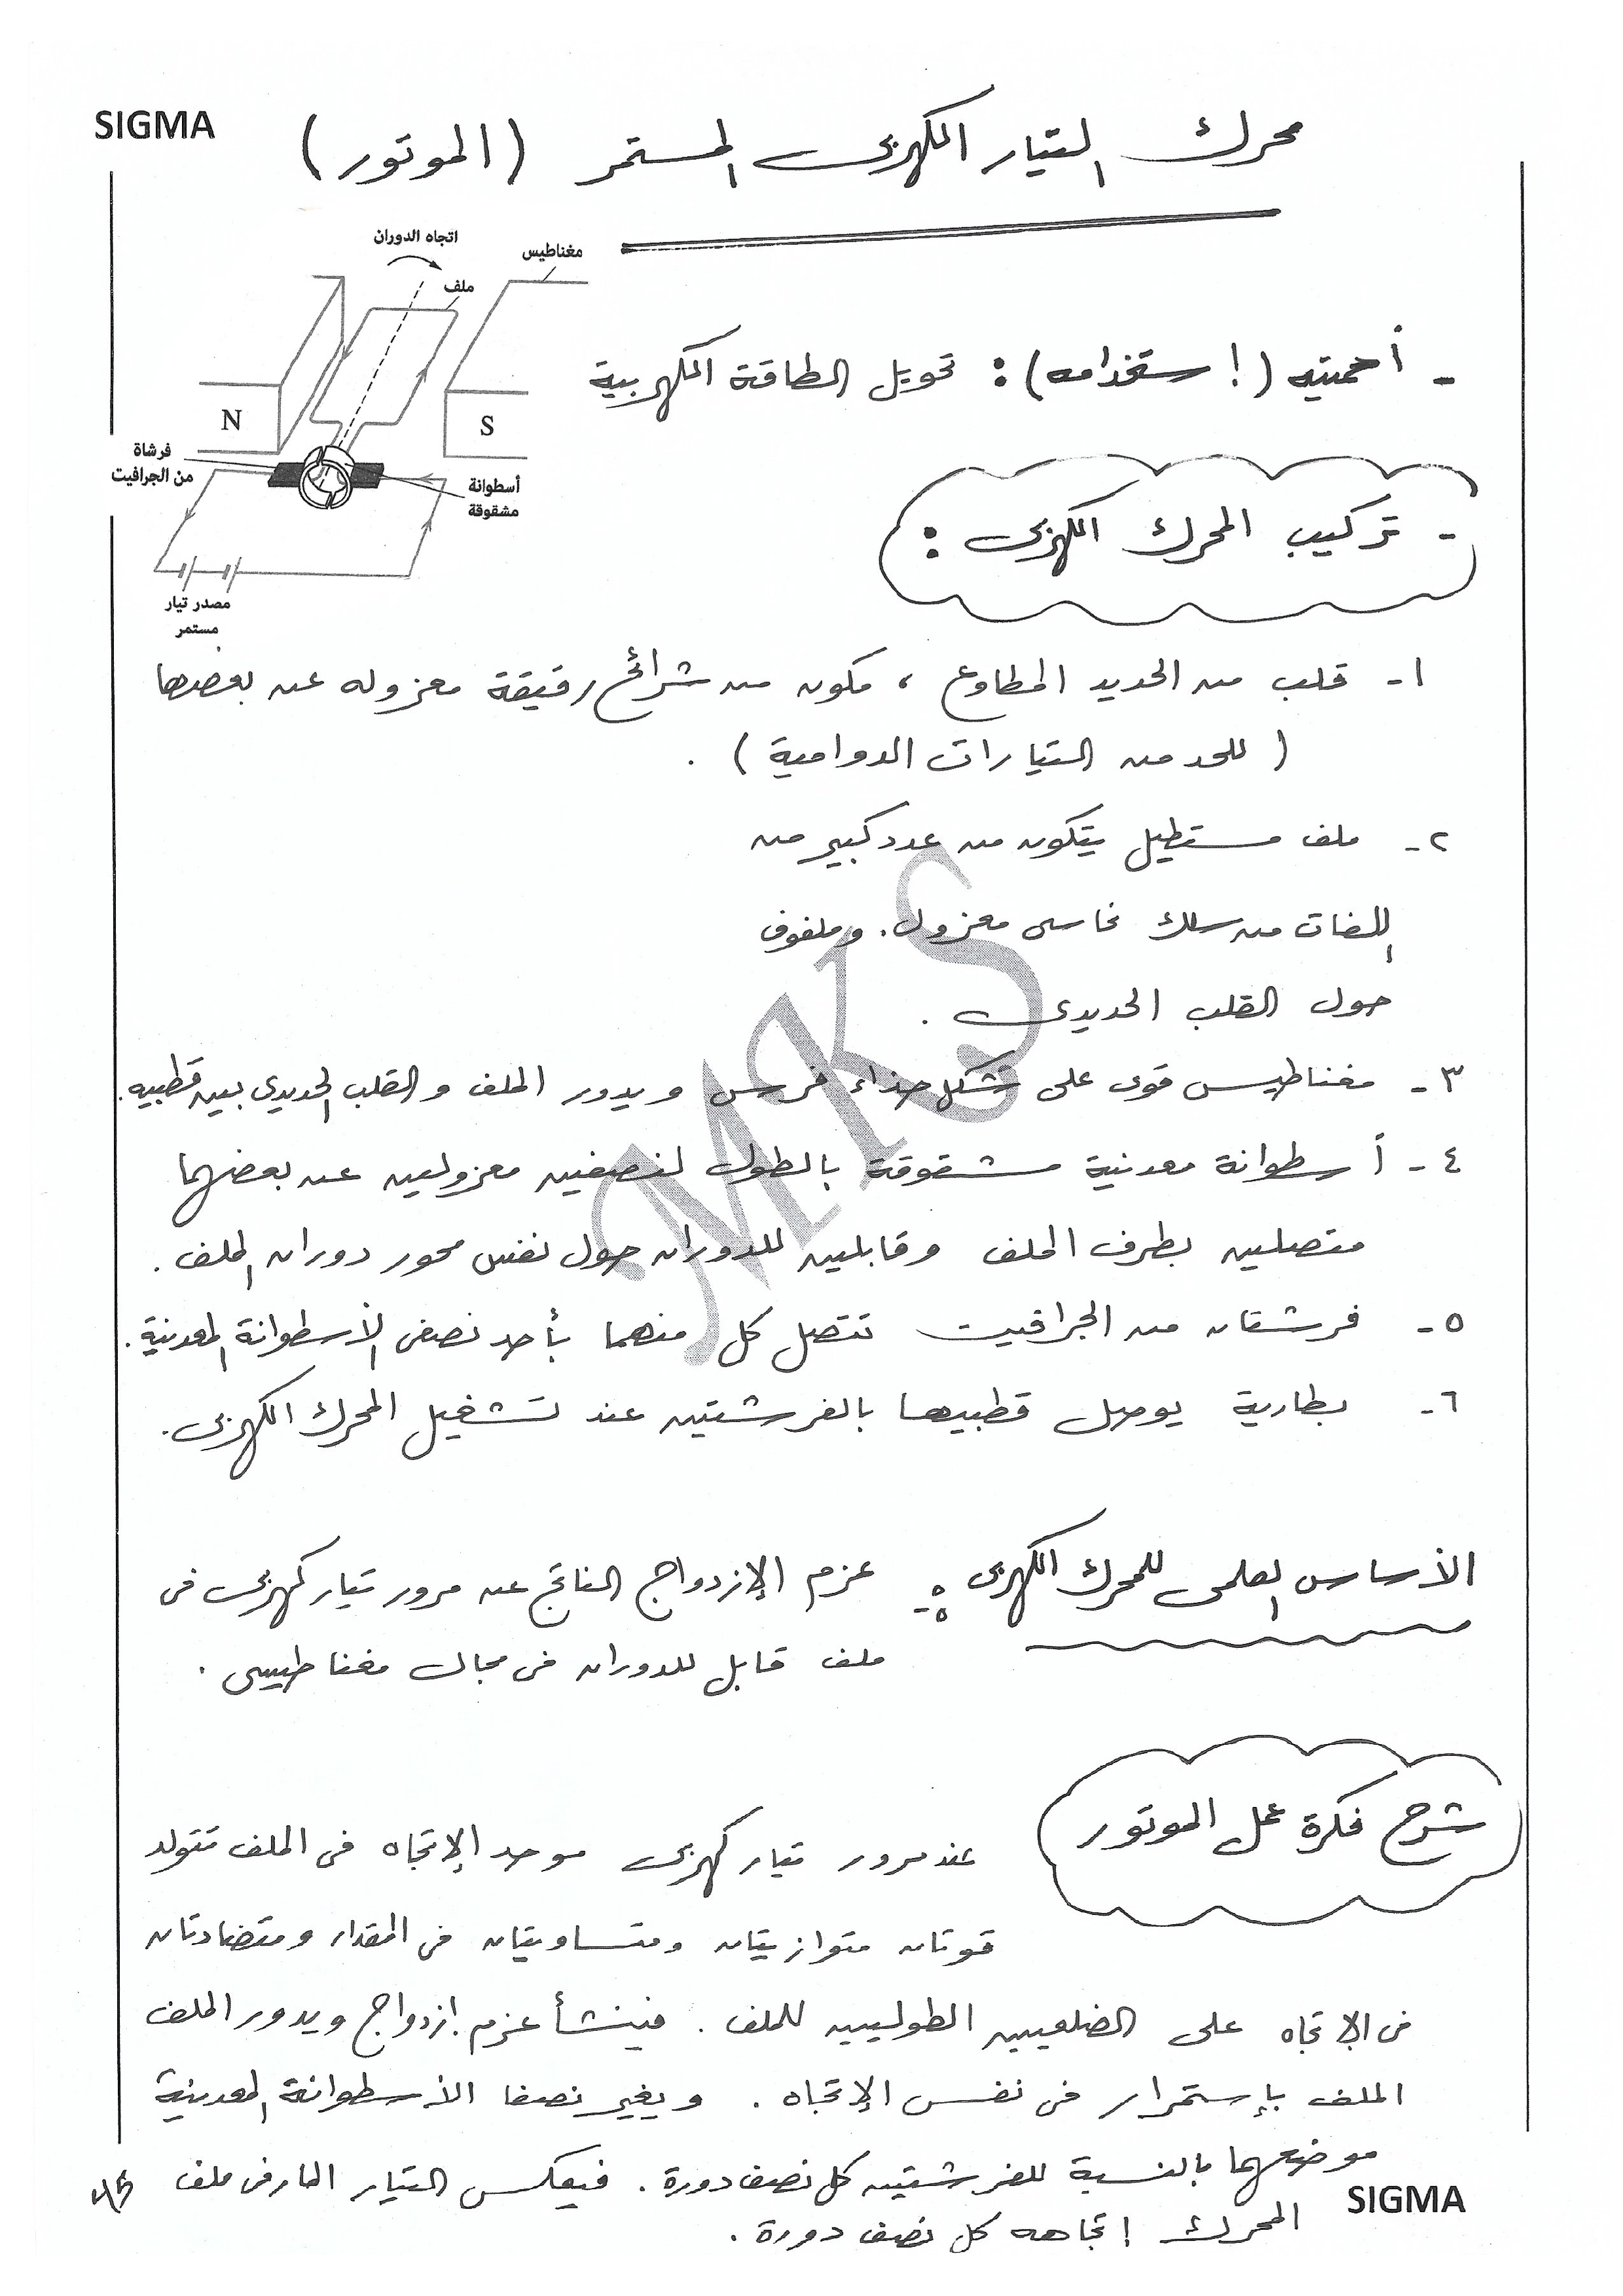 SIGMA
محرك التيار الكهربى المستمر (الموتور)
اتجاه الدوران
مغناطيس
ملف
N
S
فرشاة
من الجرافيت
أسطوانة
مشقوقة
مصدر تيار
مستمر
- أهميته (إستخدامه) : تحويل الطاقة الكهربية
- تركيب المحرك الكهربى :
١- قلب من الحديد المطاوع ، مكون من شرائح رقيقة معزوله عن بعضها
( للحد من التيارات الدوامية ) .
٢- ملف مستطيل يتكون من عدد كبير من
اللفات من سلك نحاسى معزول . وملفوف
حول القلب الحديدى .
٣- مغناطيس قوى على شكل حذاء فرس ويدور الملف والقلب الحديدى بين قطبيه .
٤- أسطوانة معدنية مشقوقة بالطول لنصفين معزولين عن بعضهما
متصلين بطرفى الملف وقابلين للدوران حول نفس محور دوران الملف .
٥- فرشتان من الجرافيت تتصل كل منهما بأحد نصفى الأسطوانة المعدنية .
٦- بطارية يوصل قطبيها بالفرشتين عند تشغيل المحرك الكهربى .
الأساس العلمى للمحرك الكهربى :- عزم الإزدواج الناتج عن مرور تيار كهربى فى
ملف قابل للدوران فى مجال مغناطيسى .
شرح فكرة عمل الموتور
عند مرور تيار كهربى موحد الإتجاه فى الملف تتولد
قوتان متوازيتان ومتساويتان فى المقدار ومتضادتان
فى الإتجاه على الضلعيين الطوليين للملف . فينشأ عزم إزدواج ويدور الملف
الملف بإستمرار فى نفس الإتجاه . ويغير نصفا الأسطوانة المعدنية
موضعهما بالنسبة للفرشتين كل نصف دورة . فيعكس التيار المار فى ملف
المحرك إتجاهه كل نصف دورة .
SIGMA
MKS